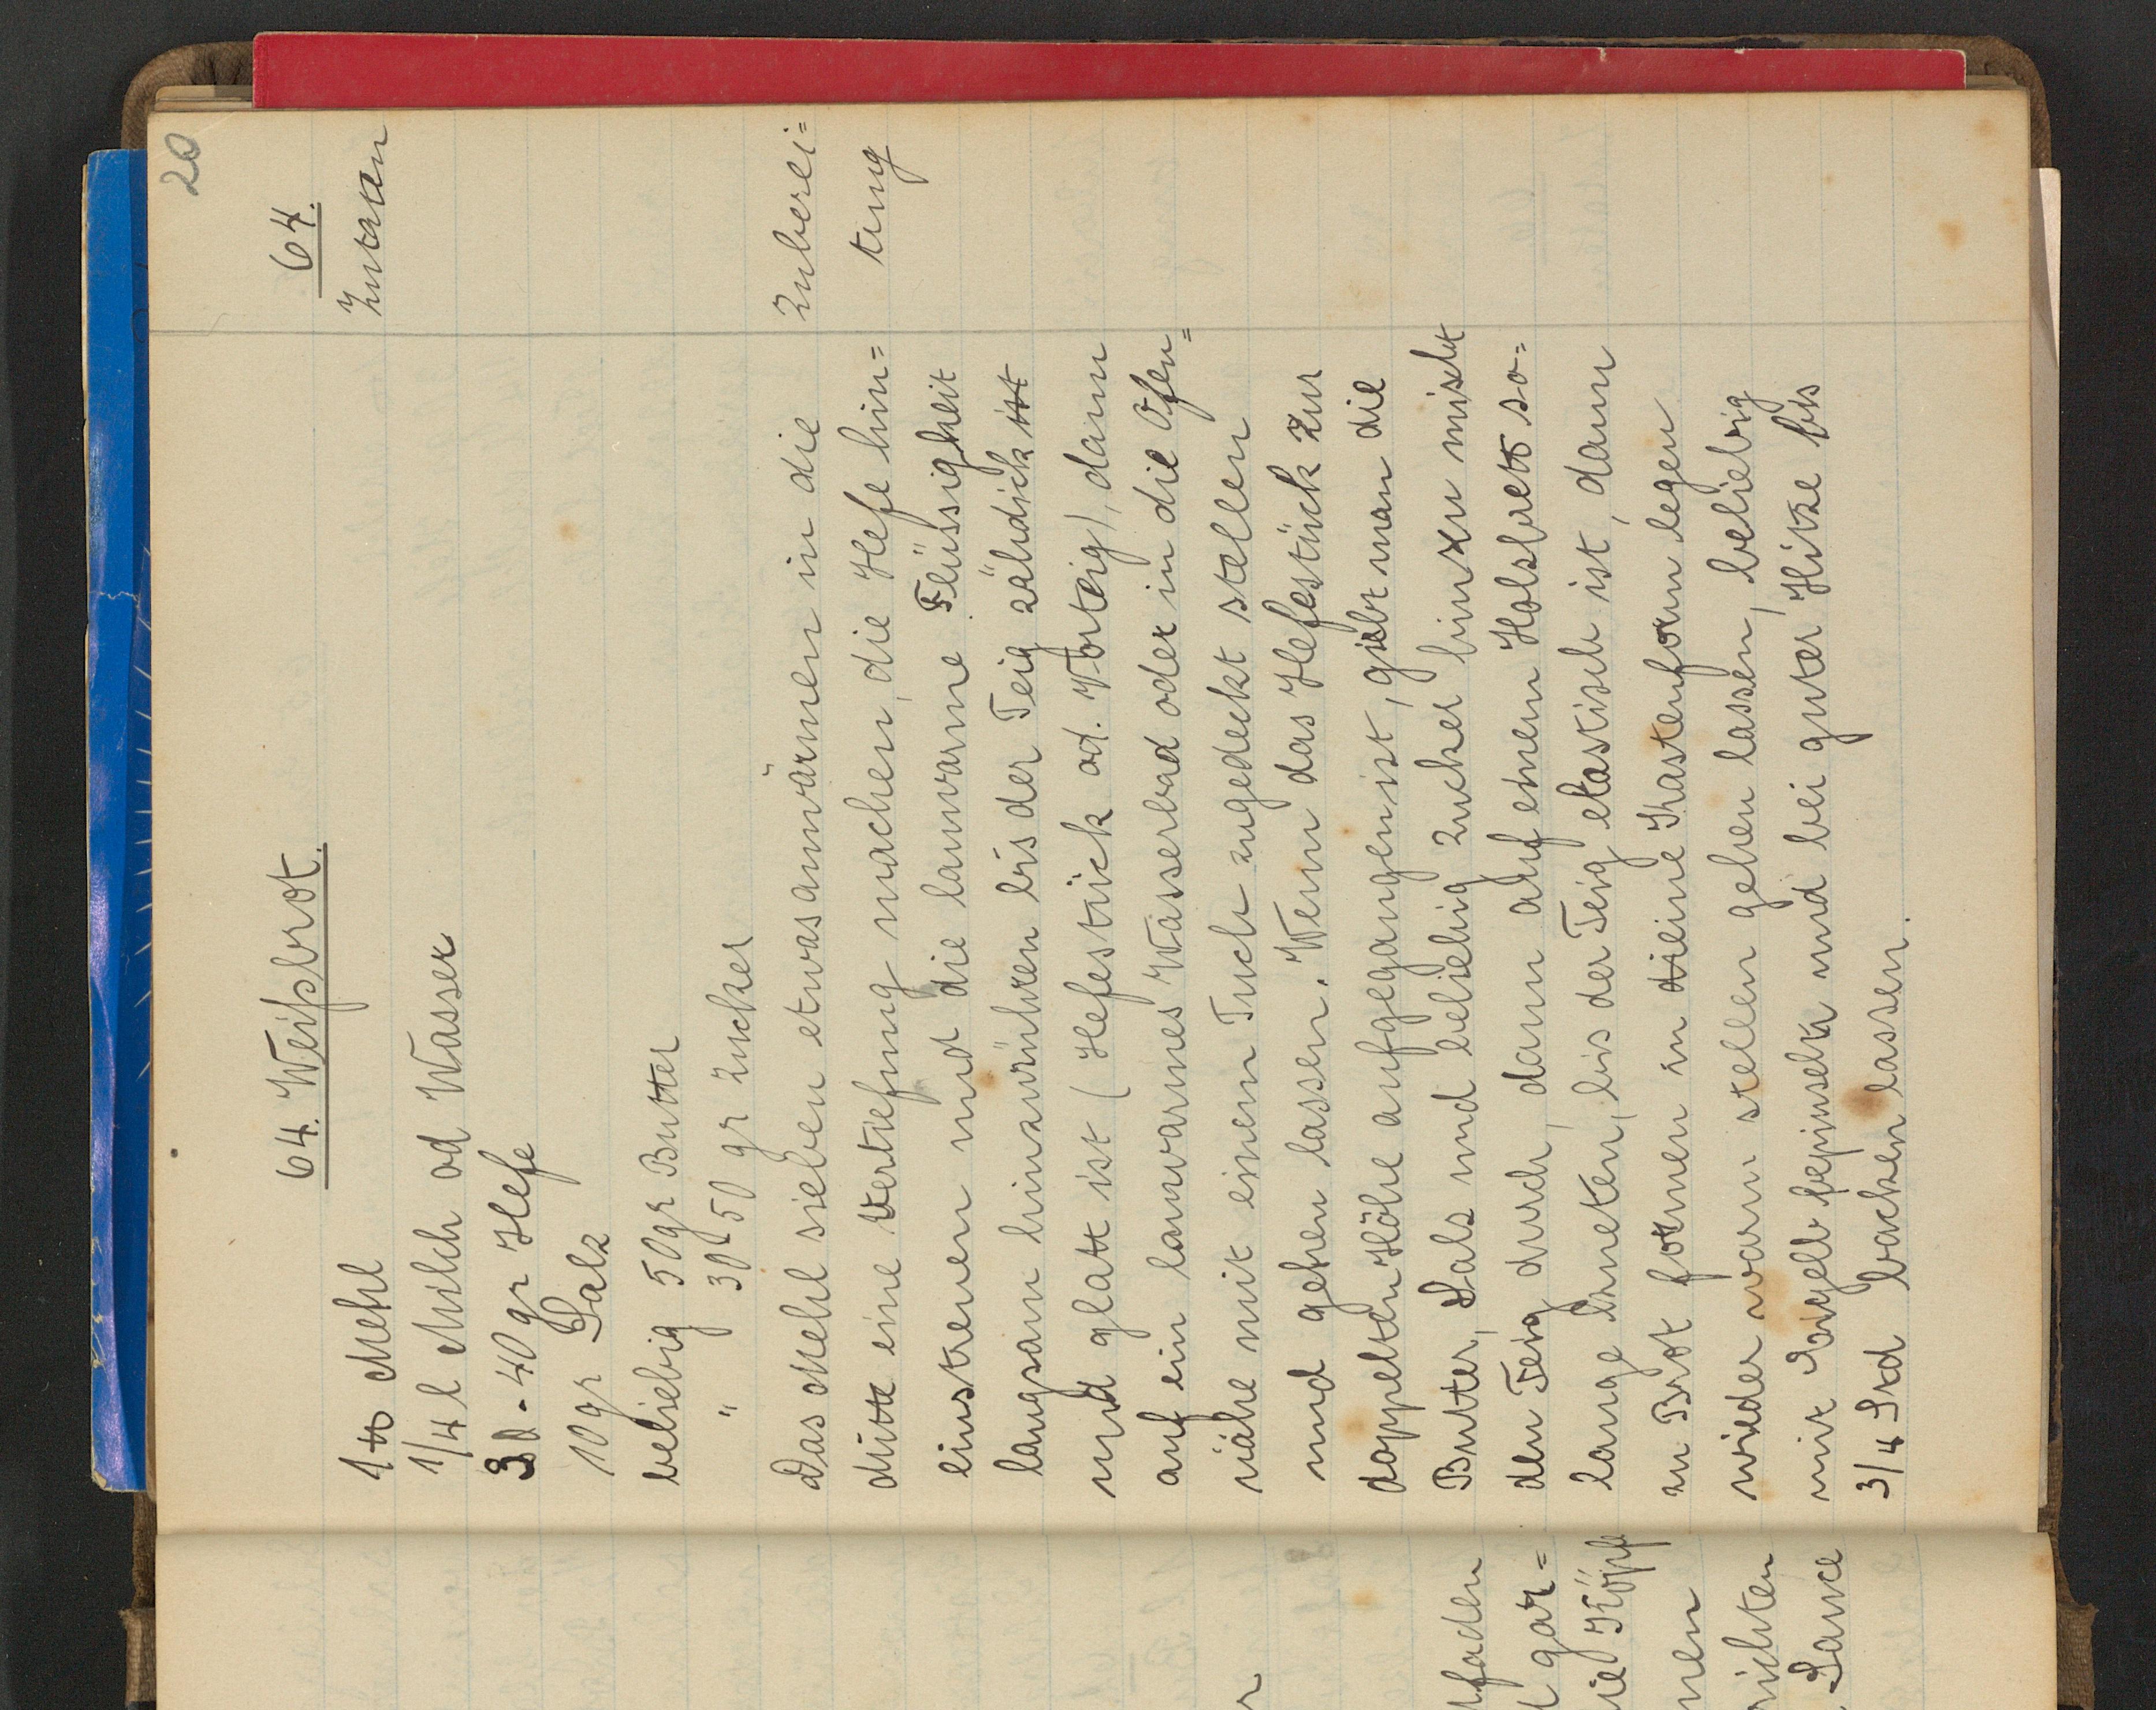 20
64. Weißbrot.
64.
1 ℔ Mehl
Zutaten
1/4 l Milch od Wasser
30 - 40 gr Hefe
10 gr Salz
beliebig 50 gr Butter
" 30-50 gr Zucker
Das Mehl sieben etwas anwärmen in die
Zuberei=
Mitte eine Vertiefung machen, die Hefe hin=
tung
einstreuen und die lauwarme Flüssigkeit
langsam hinzurühren bis der Teig zähdick ist
und glatt ist (Hefestück od. Vorteig), dann
auf ein lauwarmes Wasserbad oder in die Ofen=
nähe mit einem Tuch zugedeckt stellen
und gehen lassen. Wenn das Hefestück zur
doppelten Höhe aufgegangen ist, giebt man die
Butter, Salz und beliebig Zucker hinzu mischt
den Teig durch, dann auf einem Holzbrett so=
lange kneten, bis der Teig elastisch ist, dann
zu Brot formen in eine Kastenform legen
wieder warm stellen gehen lassen, beliebig
mit Eigelb bepinseln und bei guter Hitze bis
3/4 Std backen lassen.
faden
gar=
ie Köpf
nen
richten
Sauce